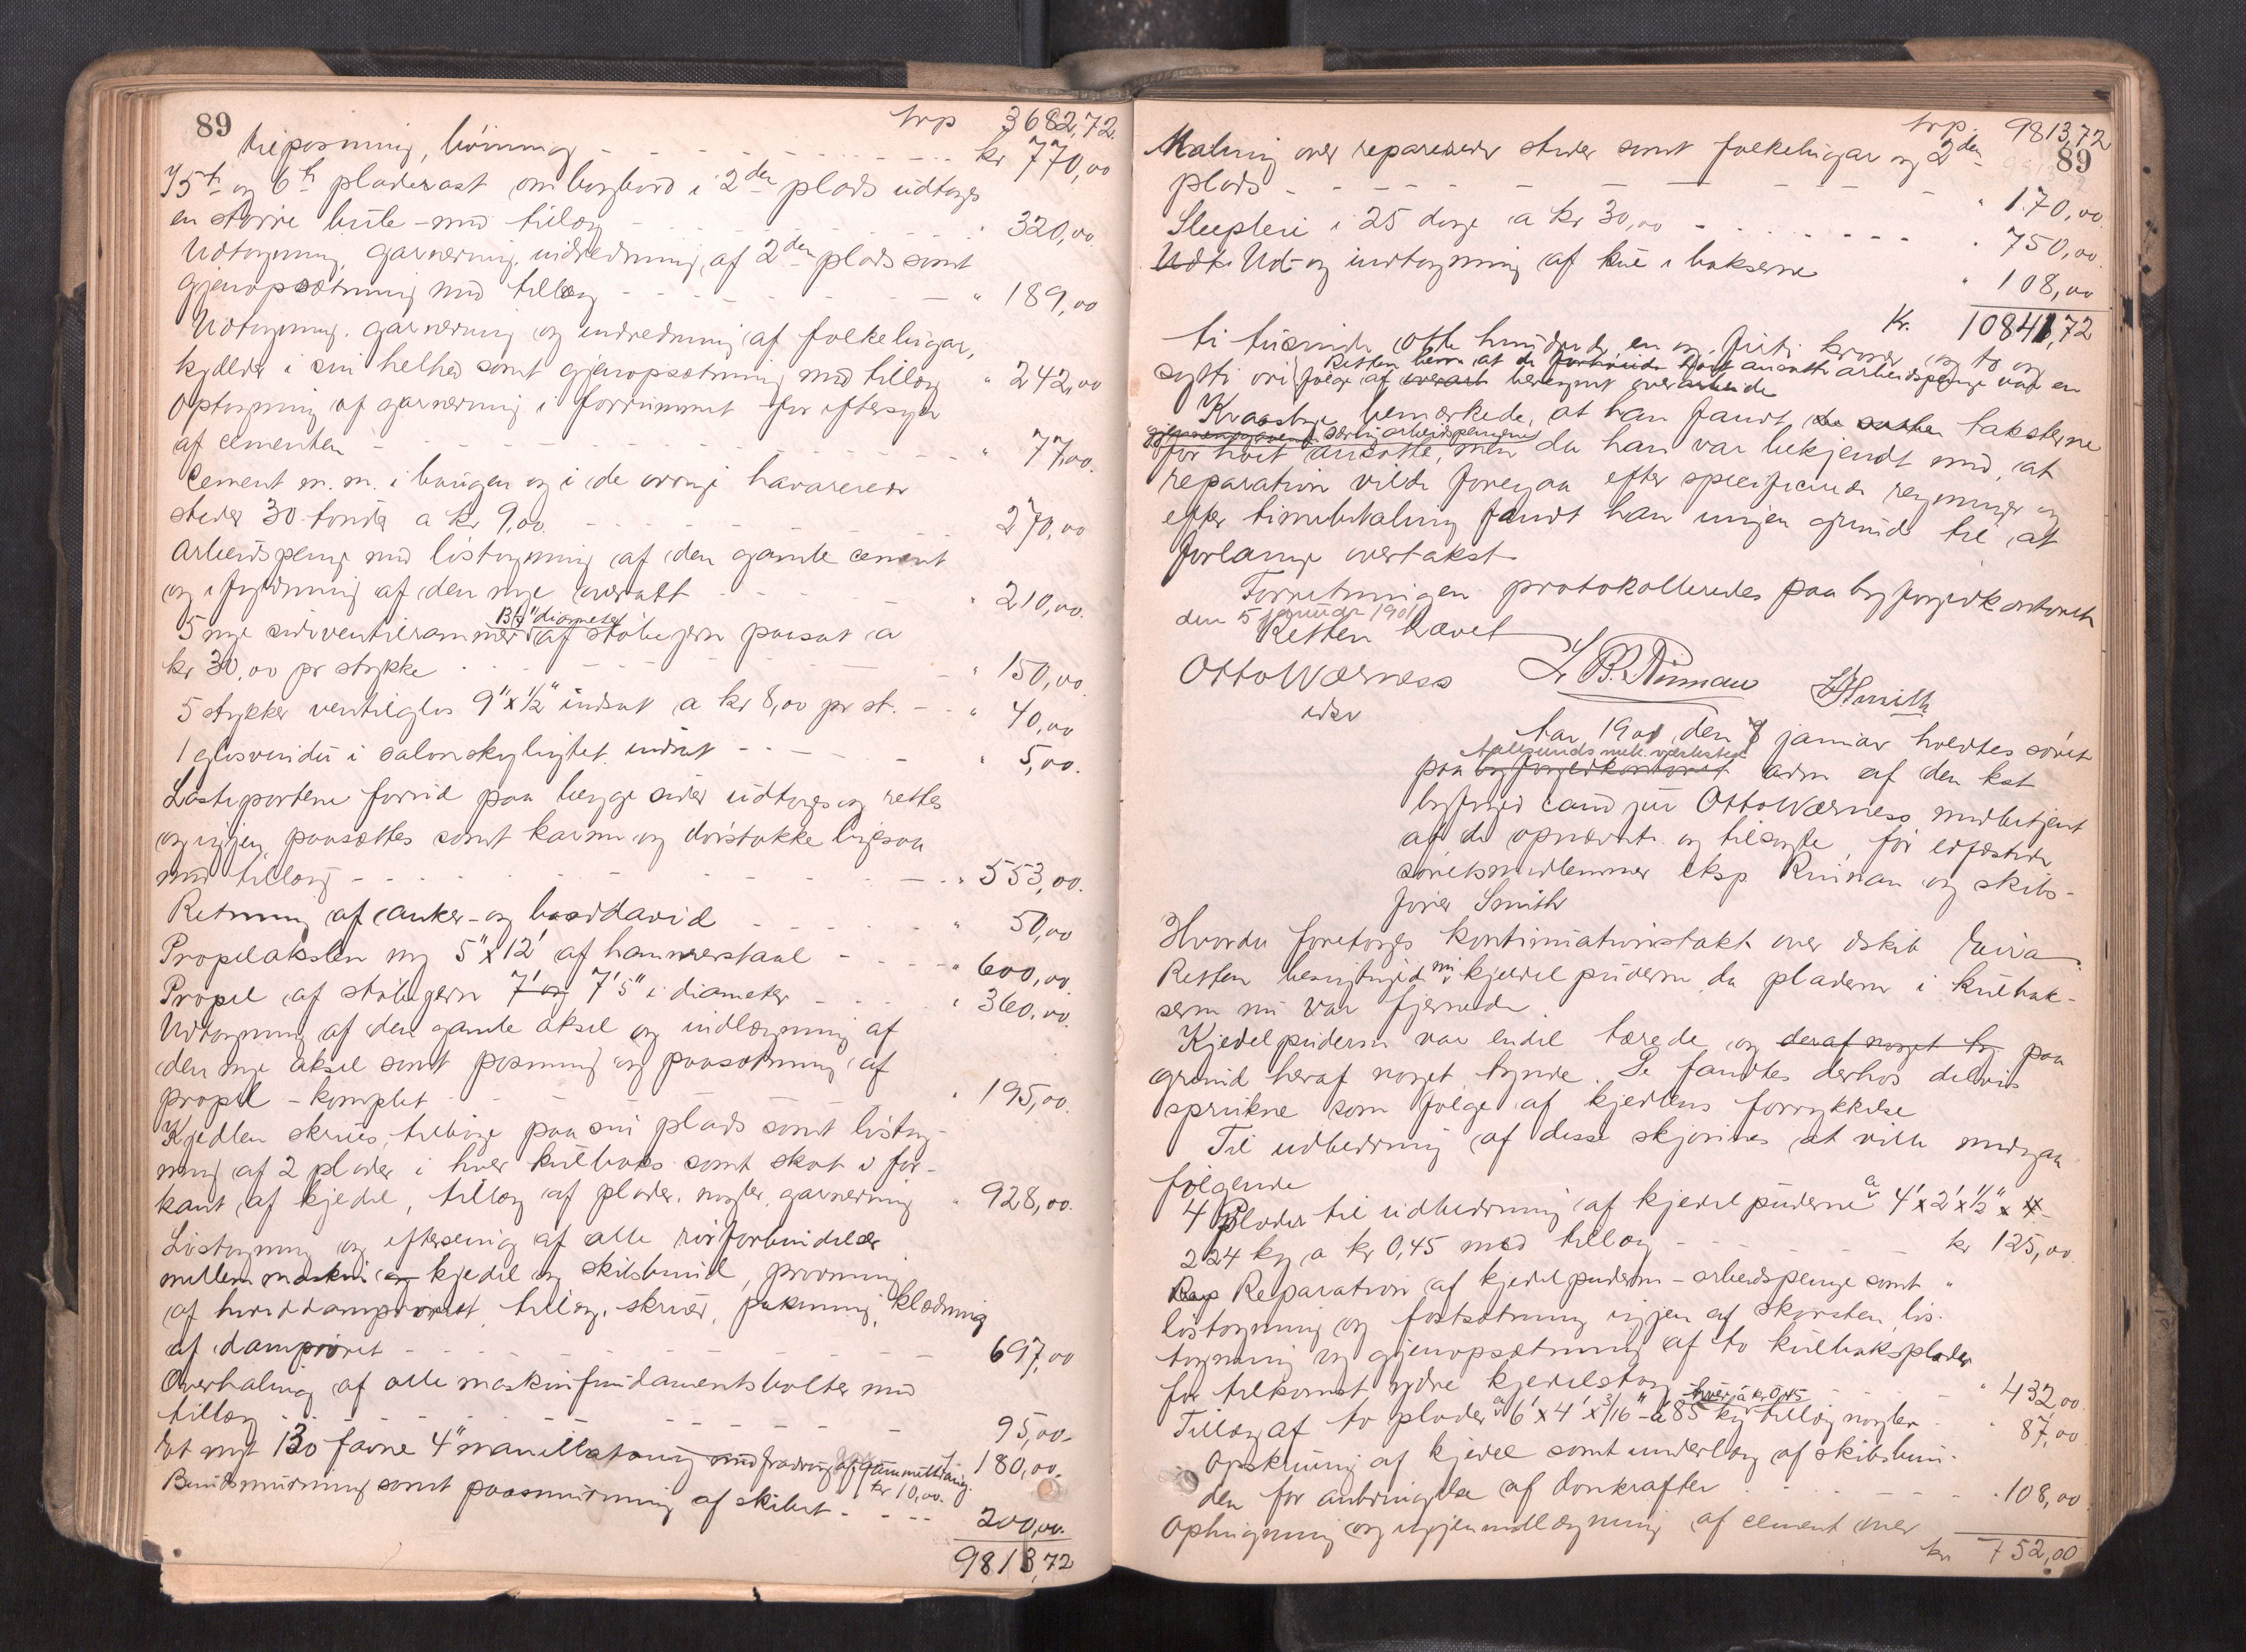 89
trp 3682,72.
tilpasning, börning kr 770,00
I 5te og 6te pladerast om bagbord i 2den plads udtoges
en större bule - med tillæg " 320,00
Udtagning, garnering, indredning, af 2den plads samt
gjenopsætning med tillæg " 189,00
Udtagning, garnering og indredning af folkelugar,
kjælder i sin helhed samt gjenopsætning med tillæg " 242,00
Optagning af garnering i forrummet for eftersyn
af cementen " 77,00.
Cement m. m. i baugen og i de övrige havarerede
steder 30 tönder a kr 9,00 270,00
Arbeidspenge med löstagning af den gamle cement
og ifyldning af den nye overalt " 210,00.
diameter
5 nye sideventilrammer af stöbejern paasat a
kr 30,00 pr stykke " 150,00
5 stykker ventilglas 9" x 1/2" indsat a kr 8,00 pr st. " 40,00
1 glasvindu i salonskylightet indsat " 5,00.
Lasteportene forrud paa begge sider udtoges og rettes
og igjen paasættes samt karme og dörstokke ligesaa
med tillæg " 553,00.
Retning af anker- og baaddavid " 50,00
Propelakslen ny 5" x 12' af hammerstaal " 600,00.
Propel af stöbegern 7' og 7'5" i diameter " 360,00.
Udtagning af den gamle aksel og indlægning af
den nye aksel samt pasning og paasætning af
propel - komplet " 195,00.
Kjedlen skrues tilbage paa sin plads samt löstag-
ning af 2 plader i hver kulboks samt skot i for-
kant af kjedel, tillæg af plader, nagler, garnering " 928,00.
Löstagning og eftersening af alle rörforbindelser
mellem maskin og kjedel og skibsbund, prövning
af hoveddampröret, tillæg, skruer, pakning, klædning
af dampröret 697,00
Overhaling af alle maskinfundamentsbolter med
tillæg 95,00-
Et nyt 130 favne 4" manillatoug med fradrag af gammelt toug kr 10,00. 180,00.
Bundsmurning samt paasmurning af skibet 200,00.
9813,72
trp. 9813,72
89
Maling over reparerede steder samt folkelugar og 2den
plads " 170,00.
Slepleie i 25 dage a kr 30,00 " 750,00.
Udt Ud- og indtagning af kul i bokserne " 108,00
Kr. 10841,72
ti tusinde otte hundrede en og firti kroner og to og
Retten bem at de höit ansatte arbeidspenge var en
sytti öre fölge af beregnet overarbeide
Kraasbye bemærkede, at han fandt taksterne
særlig arbeidspengene
for höit ansatte, men da han var bekjendt med, at
reparation vilde foregaa efter specificerede regninger og
efter timebetaling fandt han ingen grund til at
forlange overtakst.
Forretningen protokolleredes paa byfogedkontoret
den 5 januar 1901
Retten hævet
Otto Værness
Smith
Aar 1901 den januar holdtes söret
Aalesunds mek. værksted
paa byfogedkontoret adm af den kst
byfoged cand jur Otto Værness medbetjent
af de opnævnte og tilsagte, för edfæstede
söretsmedlemmer eksp Rünau og skibs-
förer Smith
Hvorda foretoges kontinuationstakt over dskib Eira.
Retten besigtiged nu kjedelpuderne da pladerne i kulbok-
serne nu var fjernede.
Kjedelpuderne var endel tærede og deraf noget ty paa
grund heraf noget tynde. De fandtes derhos delvis
sprukne som fölge af kjedlens forrykkelse
Til udbedring af disse skjönnes at ville medgaa
fölgende
4 Plader til udbedring af kjedelpuderne a 4' x 2' x 1/2"
224 kg a kr 0,45 med tillæg kr 125,00
Rep Reparation af kjedelpuderne - arbeidspenge samt
löstagning og fastsætning igjen af skorsten, lös-
tagning og gjenopsætning af to kulboksplader
for tilkomst ydre kjedelstag " 432,00.
hver a kr 0,45
Tillæg af to plader a 6' x 4' x 3/16" - a 85 kg tillæg nagler " 87,00
Opskruing af kjedel samt underlag af skibsbun-
den for anbringelse af donkrafter " 108,00
Ophugning og igjenindlægning af cement over
kr 752,00